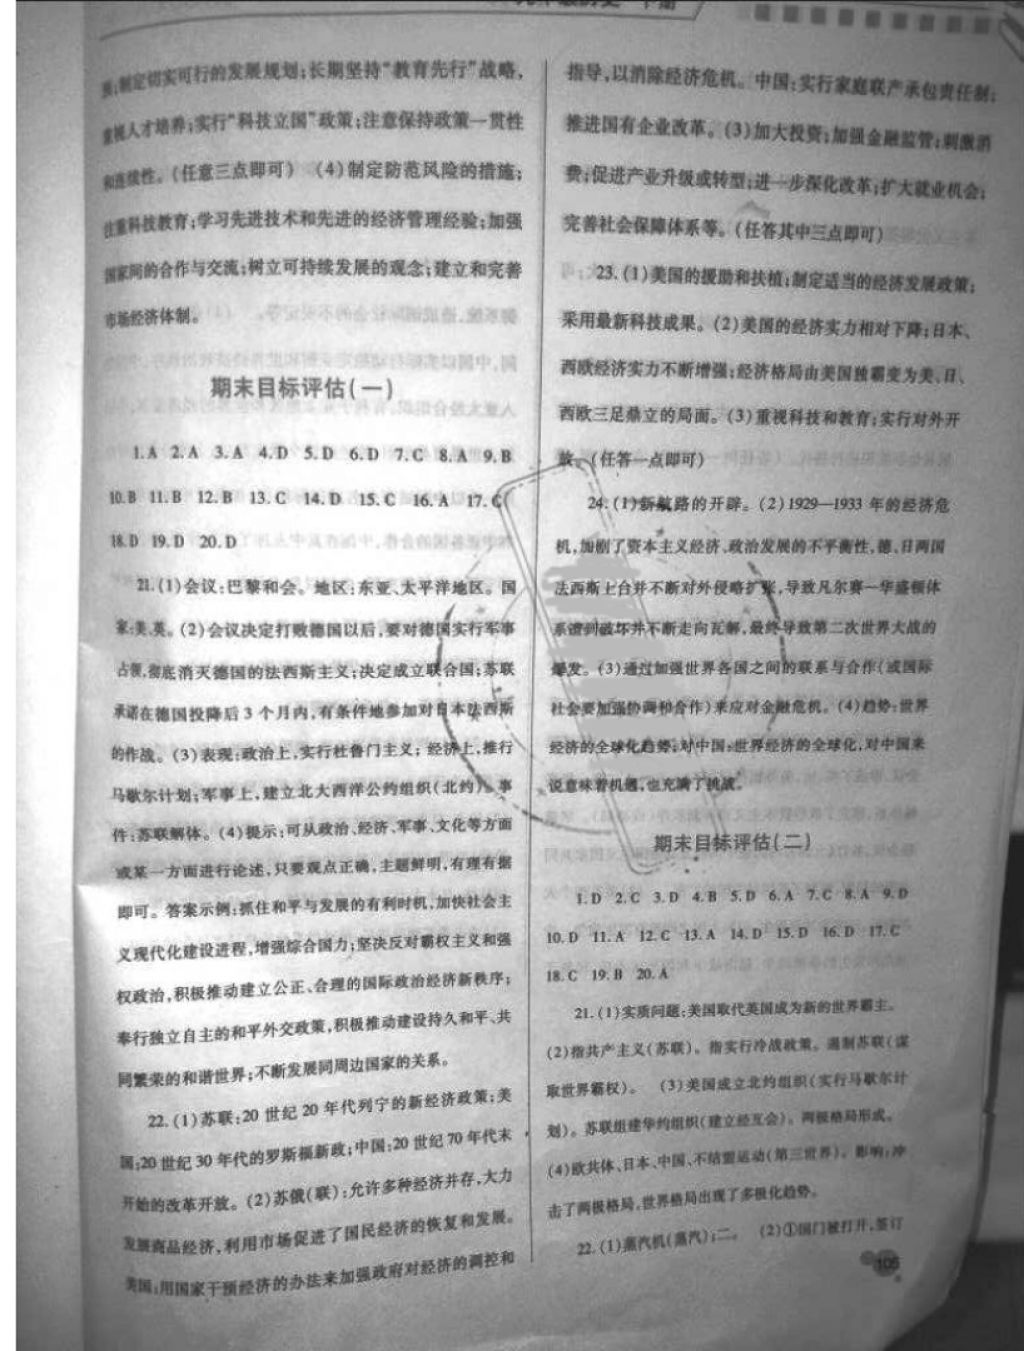 制定切实可行的发展规划;长期坚持“教育先行”战略,
重视人才培养;实行“科技立国”政策;注意保持政策一贯性
和连续性。(任意三点即可) (4)制定防范风险的措施;
注重科技教育;学习先进技术和先进的经济管理经验;加强
国家间的合作与交流;树立可持续发展的观念;建立和完善
市场经济体制。
期末目标评估(一)
1.A 2.A 3.A 4.D 5.D 6.D 7.C 8.A 9.B
10.B 11.B 12.B 13.C 14.D 15.C 16.A 17.C
18.D 19.D 20.D
21.(1)会议:巴黎和会。地区:东亚、太平洋地区。国
家:美、英。(2)会议决定打败德国以后,要对德国实行军事
占领,彻底消灭德国的法西斯主义;决定成立联合国;苏联
承诺在德国投降后3个月内,有条件地参加对日本法西斯
的作战。(3)表现:政治上,实行杜鲁门主义;经济上,推行
马歇尔计划;军事上,建立北大西洋公约组织(北约)。事
件:苏联解体。(4)提示:可从政治、经济、军事、文化等方面
或某一方面进行论述,只要观点正确,主题鲜明,有理有据
即可。答案示例:抓住和平与发展的有利时机,加快社会主
义现代化建设进程,增强综合国力;坚决反对霸权主义和强
权政治,积极推动建立公正、合理的国际政治经济新秩序;
奉行独立自主的和平外交政策,积极推动建设持久和平、共
同繁荣的和谐世界;不断发展同周边国家的关系。
22.(1)苏联:20世纪20年代列宁的新经济政策;美
国:20世纪30年代的罗斯福新政;中国:20世纪70年代末
开始的改革开放。(2)苏俄(联):允许多种经济并存,大力
发展商品经济,利用市场促进了国民经济的恢复和发展。
美国:用国家干预经济的办法来加强政府对经济的调控和
指导,以消除经济危机。中国:实行家庭联产承包责任制;
推进国有企业改革。(3)加大投资;加强金融监管;刺激消
费;促进产业升级或转型;进一步深化改革;扩大就业机会;
完善社会保障体系等。(任答其中三点即可)
23.(1)美国的援助和扶植;制定适当的经济发展政策;
采用最新科技成果。(2)美国的经济实力相对下降;日本、
西欧经济实力不断增强;经济格局由美国独霸变为美、日、
西欧三足鼎立的局面。(3)重视科技和教育;实行对外开
放。(任答一点即可)
24.(1)新航路的开辟。(2)1929—1933年的经济危
机,加剧了资本主义经济、政治发展的不平衡性,德、日两国
法西斯上台并不断对外侵略扩张,导致凡尔赛—华盛顿体
系遭到破坏并不断走向瓦解,最终导致第二次世界大战的
爆发。(3)通过加强世界各国之间的联系与合作(或国际
社会要加强协调和合作)来应对金融危机。(4)趋势:世界
经济的全球化趋势;对中国:世界经济的全球化,对中国来
说意味着机遇,也充满了挑战。
期末目标评估(二)
1.D 2.C 3.D 4.B 5.D 6.A 7.C 8.A 9.D
10.D 11.A 12.C 13.A 14.D 15.D 16.D 17.C
18.C 19.B 20.A
21.(1)实质问题:美国取代英国成为新的世界霸主。
(2)指共产主义(苏联)。指实行冷战政策。遏制苏联(谋
取世界霸权)。 (3)美国成立北约组织(实行马歇尔计
划)。苏联组建华约组织(建立经互会)。两极格局形成。
(4)欧共体、日本、中国、不结盟运动(第三世界)。影响:冲
击了两极格局,世界格局出现了多极化趋势。
22.(1)蒸汽机(蒸汽);二。 (2)①国门被打开,签订
105